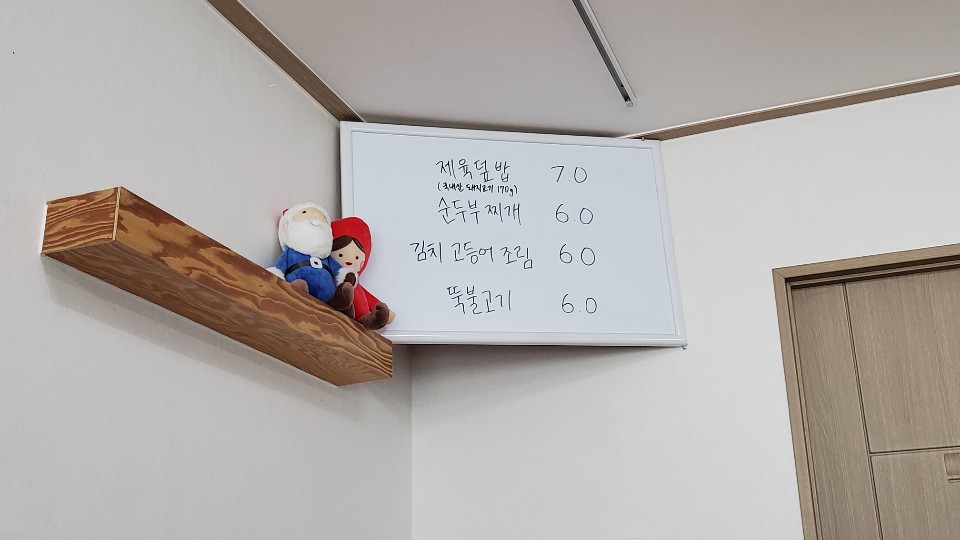 제육덮밥 7.0
(국내산 돼지고기 170g)
순두부 찌개 6.0
김치 고등어 조림 6.0
뚝불고기 6.0